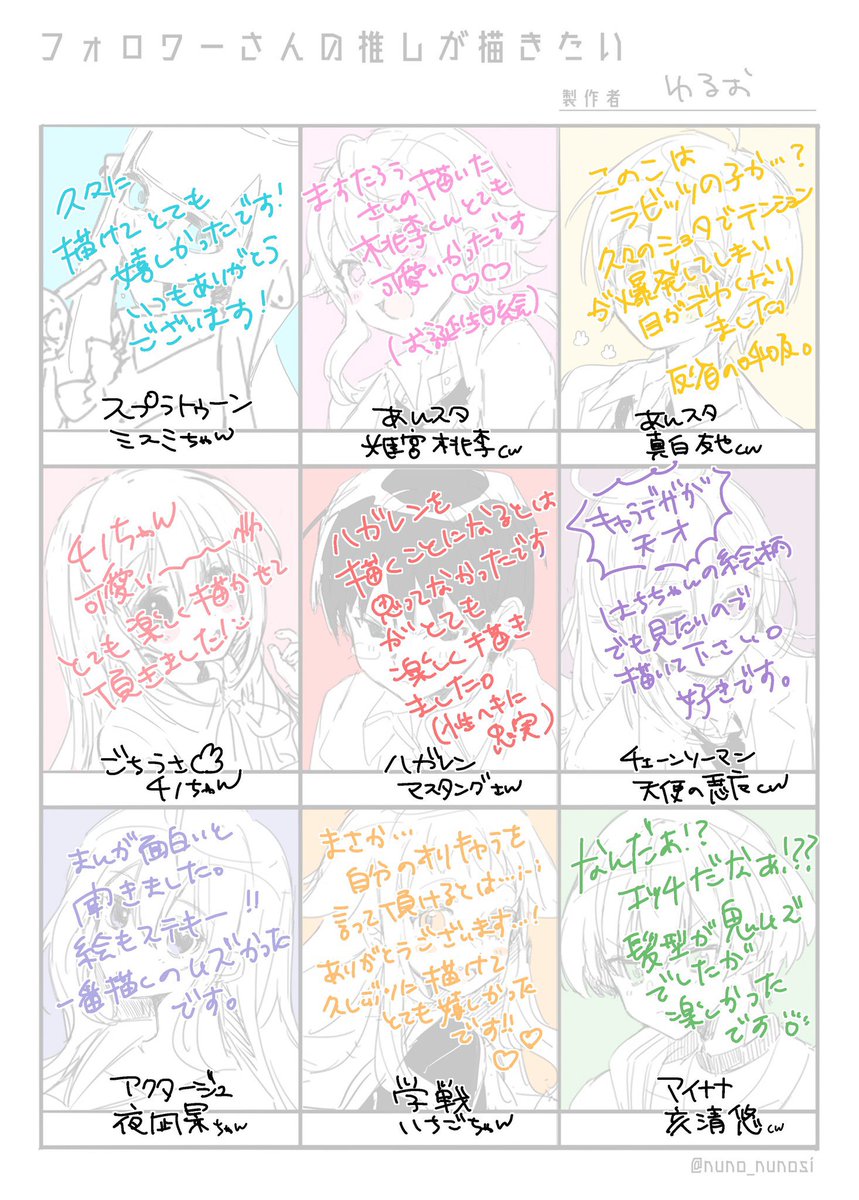 フォロワーさんの推しが描きたい
製作者 ゆるお
久々に
描けてとても
嬉しかったです!
いつもありがとう
ございます!
スプラトゥーン
ミスミちゃん
ますたろう
さんの描いた
桃李くんとても
可愛いかったです
♡♡
(お誕生日絵)
あんスタ
姫宮桃李cn
このこは
ラビッツの子か…?
久々のショタでテンション
が爆発してしまい
目がデカくなり
ました
反省の呼吸。
あんスタ
真白友也cn
チノちゃん
可愛い〜〜
とても楽しく描かせて
頂きました!
ごちうさ
チノちゃん
ハガレンを
描くことになるとは
思ってなかったです
がとても
楽しく描き
ました。
(性ヘキに
忠実)
ハガレン
マスタングさん
キャラデザが
天才
はちちゃんの絵柄
でも見たいので
描いて下さい。
好きです。
チェーンソーマン
天使の悪魔cn
まんが面白いと
聞きました。
絵もステキー!!
一番描くのムズかった
です。
アクタージュ
夜凪景ちゃん
まさか…
自分のオリキャラを
言って頂けるとは…
ありがとうございます…!
久しぶりに描けて
とても嬉しかった
です!!♡♡
学戦
いちごちゃん
なんだぁ!?
エッチだなぁ!??
髪型が鬼ムズ
でしたが
楽しかった
です
アイナナ
亥清悠cn
@nuno_nunosi